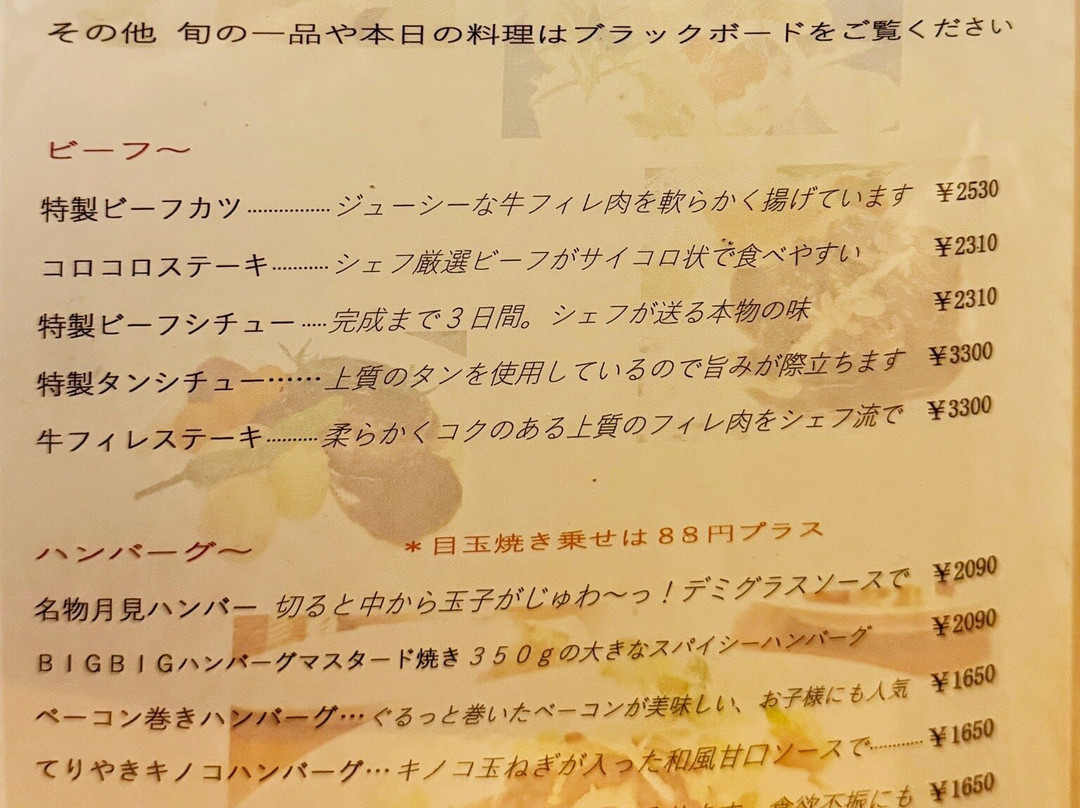 その他 旬の一品や本日の料理はブラックボードをご覧ください
ビーフ～
特製ビーフカツ................ジューシーな牛フィレ肉を軟らかく揚げています ¥2530
コロコロステーキ...........シェフ厳選ビーフがサイコロ状で食べやすい ¥2310
特製ビーフシチュー.....完成まで３日間。シェフが送る本物の味 ¥2310
特製タンシチュー……上質のタンを使用しているので旨みが際立ちます ¥3300
牛フィレステーキ..........柔らかくコクのある上質のフィレ肉をシェフ流で ¥3300
ハンバーグ～ ＊目玉焼き乗せは８８円プラス
名物月見ハンバー 切ると中から玉子がじゅわ～っ！デミグラスソースで ¥2090
ＢＩＧＢＩＧハンバーグマスタード焼き３５０ｇの大きなスパイシーハンバーグ ¥2090
ベーコン巻きハンバーグ…ぐるっと巻いたベーコンが美味しい、お子様にも人気 ¥1650
てりやきキノコハンバーグ…キノコ玉ねぎが入った和風甘口ソースで.......... ¥1650
食欲不振にも ¥1650